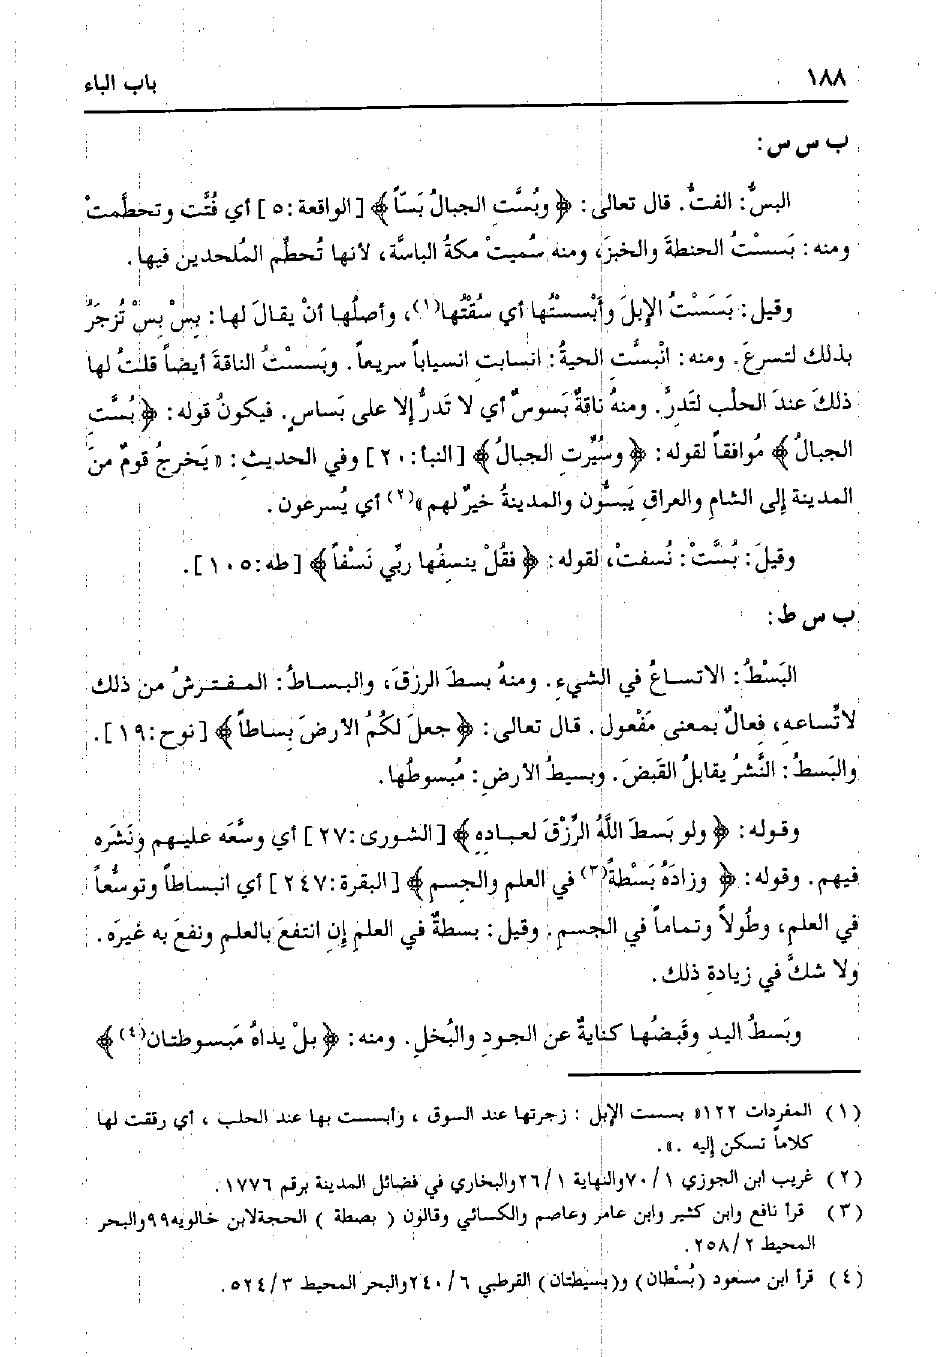 ١٨٨ باب الباء
ب س س:
البسُّ: الفتُّ. قال تعالى: ﴿وبُسَّت الجبالُ بَسّاً﴾ [الواقعة:٥] أي فُتَّت وتحطَّمتْ
ومنه: بَسستُ الحنطةَ والخبزَ، ومنه سُميتْ مكةُ الباسَّة، لأنها تُحطِّم المُلحدين فيها.
وقيل: بَسَسْتُ الإبلَ وأَبْسسْتُها أي سُقْتُها(١)، وأصلُها أنْ يقالَ لها: بِسْ بِسْ تُزجَرُ
بذلك لتسرعَ. ومنه: انْبسَّت الحيةُ: انسابت انسياباً سريعاً. وبَسستُ الناقةَ أيضاً قلتُ لها
ذلكَ عندَ الحلْب لتَدرَّ. ومنهُ ناقةٌ بَسوسٌ أي لا تَدرُّ إلا على بَساسٍ. فيكونُ قوله: ﴿بُسَّت
الجبالُ﴾ مُوافقاً لقوله: ﴿وسُيِّرتِ الجبالُ﴾ [النبأ:٢٠] وفي الحديث: «يَخرجُ قومٌ منَ
المدينة إلى الشامِ والعراقِ يَبسُّون والمدينةُ خيرٌ لهم»(٢) أي يُسرعون.
وقيلَ: بُسَّتْ: نُسفتْ، لقوله: ﴿فقُلْ ينسِفُها ربِّي نَسْفاً﴾ [طه:١٠٥].
ب س ط:
البَسْطُ: الاتساعُ في الشيءِ. ومنهُ بسطَ الرزقَ، والبساطُ: المفترشُ من ذلك
لاتِّساعه، فعالٌ بمعنى مَفْعول. قال تعالى: ﴿جعلَ لكُمُ الأرضَ بِساطاً﴾ [نوح:١٩].
والبَسطُ: النَّشرُ يقابلُ القَبضَ. وبسيطُ الأرضِ: مُبسوطُها.
وقوله: ﴿ولو بَسطَ اللَّهُ الرِّزْقَ لعبادِهِ﴾ [الشورى:٢٧] أي وسَّعَه عليهم ونَشَره
فيهم. وقوله: ﴿وزادَهُ بَسْطةً(٣) في العلمِ والجِسمِ﴾ [البقرة:٢٤٧] أي انبساطاً وتوسُّعاً
في العلمِ، وطُولاً وتماماً في الجسمِ. وقيل: بسطةٌ في العلمِ إن انتفعَ بالعلمِ ونفعَ به غيرَه.
ولا شكَّ في زيادةِ ذلك.
وبَسطُ اليدِ وقَبضُها كنايةٌ عن الجودِ والبُخلِ. ومنه: ﴿بلْ يداهُ مَبسوطتان(٤)﴾
(١) المفردات ١٢٢ «بسست الإبل: زجرتها عند السوق، وأبسست بها عند الحلب، أي رققت لها
كلاماً تسكن إليه.».
(٢) غريب ابن الجوزي ٧٠/١ والنهاية ١/ ٢٦ والبخاري في فضائل المدينة برقم ١٧٧٦.
(٣) قرأ نافع وابن كثير وابن عامر وعاصم والكسائي وقالون (بصطة) الحجة لابن خالويه ٩٩ والبحر
المحيط ٢/ ٢٥٨.
(٤) قرأ ابن مسعود (بُسْطان) و(بسيطتان) القرطبي ٦/ ٢٤٠ والبحر المحيط ٣/ ٥٢٤.